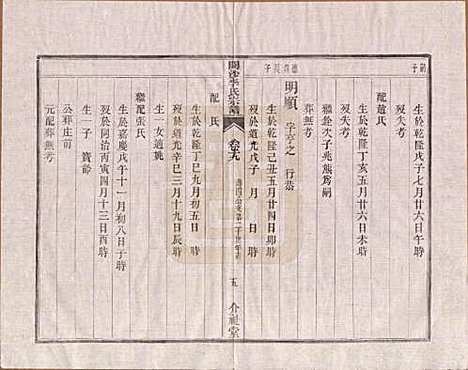 生於乾隆戊子七月廿六日午時
歿失考
配趙氏
生於乾隆丁亥五月廿六日未時
歿失考
繼銓次子兆熊爲嗣
葬無考
明順 字亭之 行恭
生於乾隆己丑五月廿四日卯時
歿於道光戊子 月 日 時
李氏宗譜
卷五
介祉堂
配 氏
生於乾隆丁巳九月初五日 時
歿於道光辛巳三月十九日辰時
生一女適姚
繼配張氏
生於嘉慶戊午十一月初八日子時
歿於同治丙寅四月十三日酉時
生一子 寶齡
公葬庄前
元配葬無考